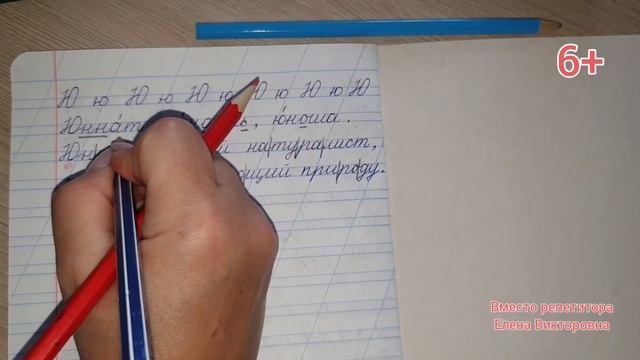 6+
Ю ю Ю ю Ю ю Ю ю Ю ю Ю
Юннат, ь, юноша.
натуралист,
природу.
Вместо репетитора
Елена Викторовна